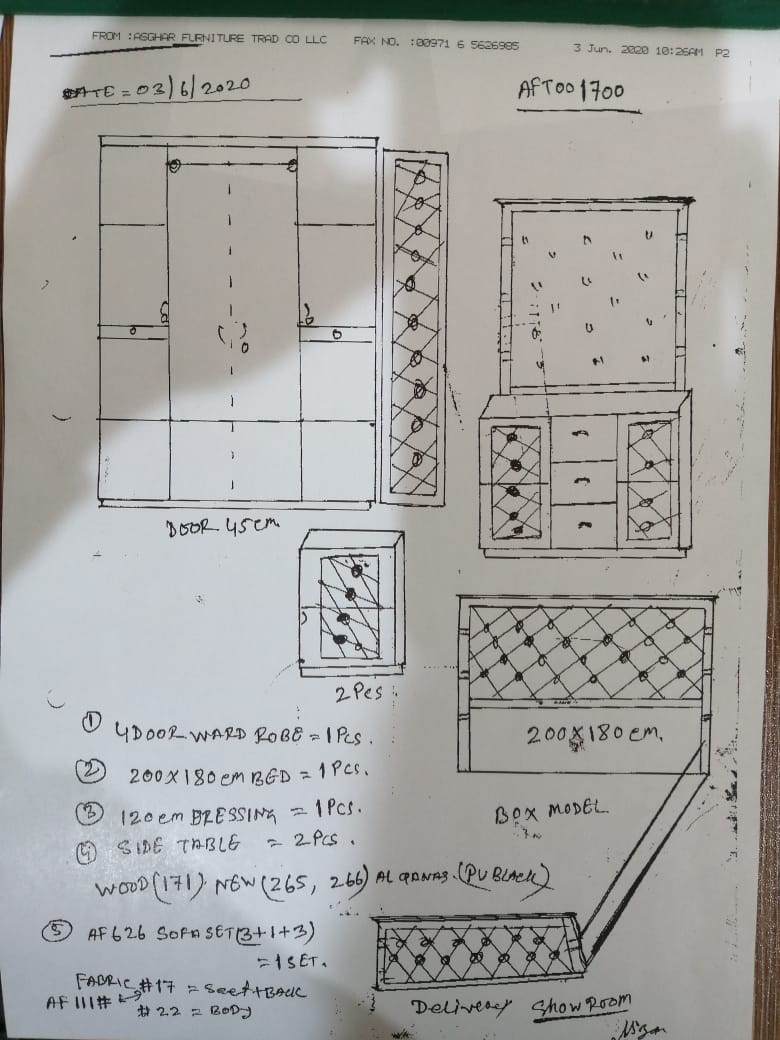 FROM :ASGHAR FURNITURE TRAD CO LLC FAX NO. :00971 6 5626985 3 Jun. 2020 10:26AM P2
DATE = 03/6/2020
AFT001700
DOOR 45cm
2Pcs.
200X180cm.
BOX MODEL
① 4DOOR WARD ROBE = 1Pcs.
② 200X180cm BED = 1Pcs.
③ 120cm DRESSING = 1Pcs.
④ SIDE TABLE = 2Pcs.
WOOD(171) NEW(265, 266) AL QANAS.(PU BLACK)
⑤ AF626 SOFA SET(3+1+3)
= 1SET.
FABRIC #17 = Seet+BACK
AF111# #22 = BODY
Delivery ShowRoom